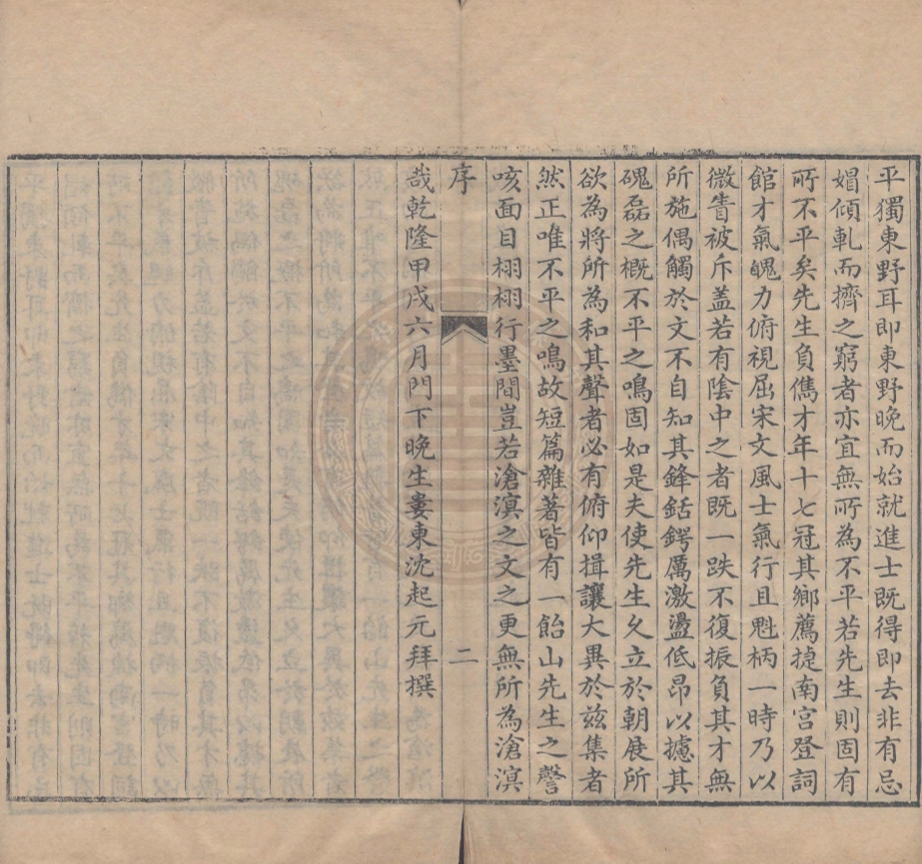 平獨東野耳即東野晚而始就進士既得即去非有忌
媢傾軋而擠之窮者亦宜無所為不平若先生則固有
所不平矣先生負儁才年十七冠其鄉薦㨗南宮登詞
館才氣魄力俯視屈宋文風士氣行且魁柄一時乃以
微眚被斥盖若有陰中之者既一跌不復振負其才無
所施偶觸於文不自知其鋒銛鍔厲激盪低昂以攄其
磈磊之概不平之鳴固如是夫使先生久立於朝展所
欲為將所為和其聲者必有俯仰揖讓大異於兹集者
然正唯不平之鳴故短篇雜著皆有一飴山先生之謦
咳面目栩栩行墨間豈若滄溟之文之更無所為滄溟
序 二
哉乾隆甲戌六月門下晚生婁東沈起元拜撰